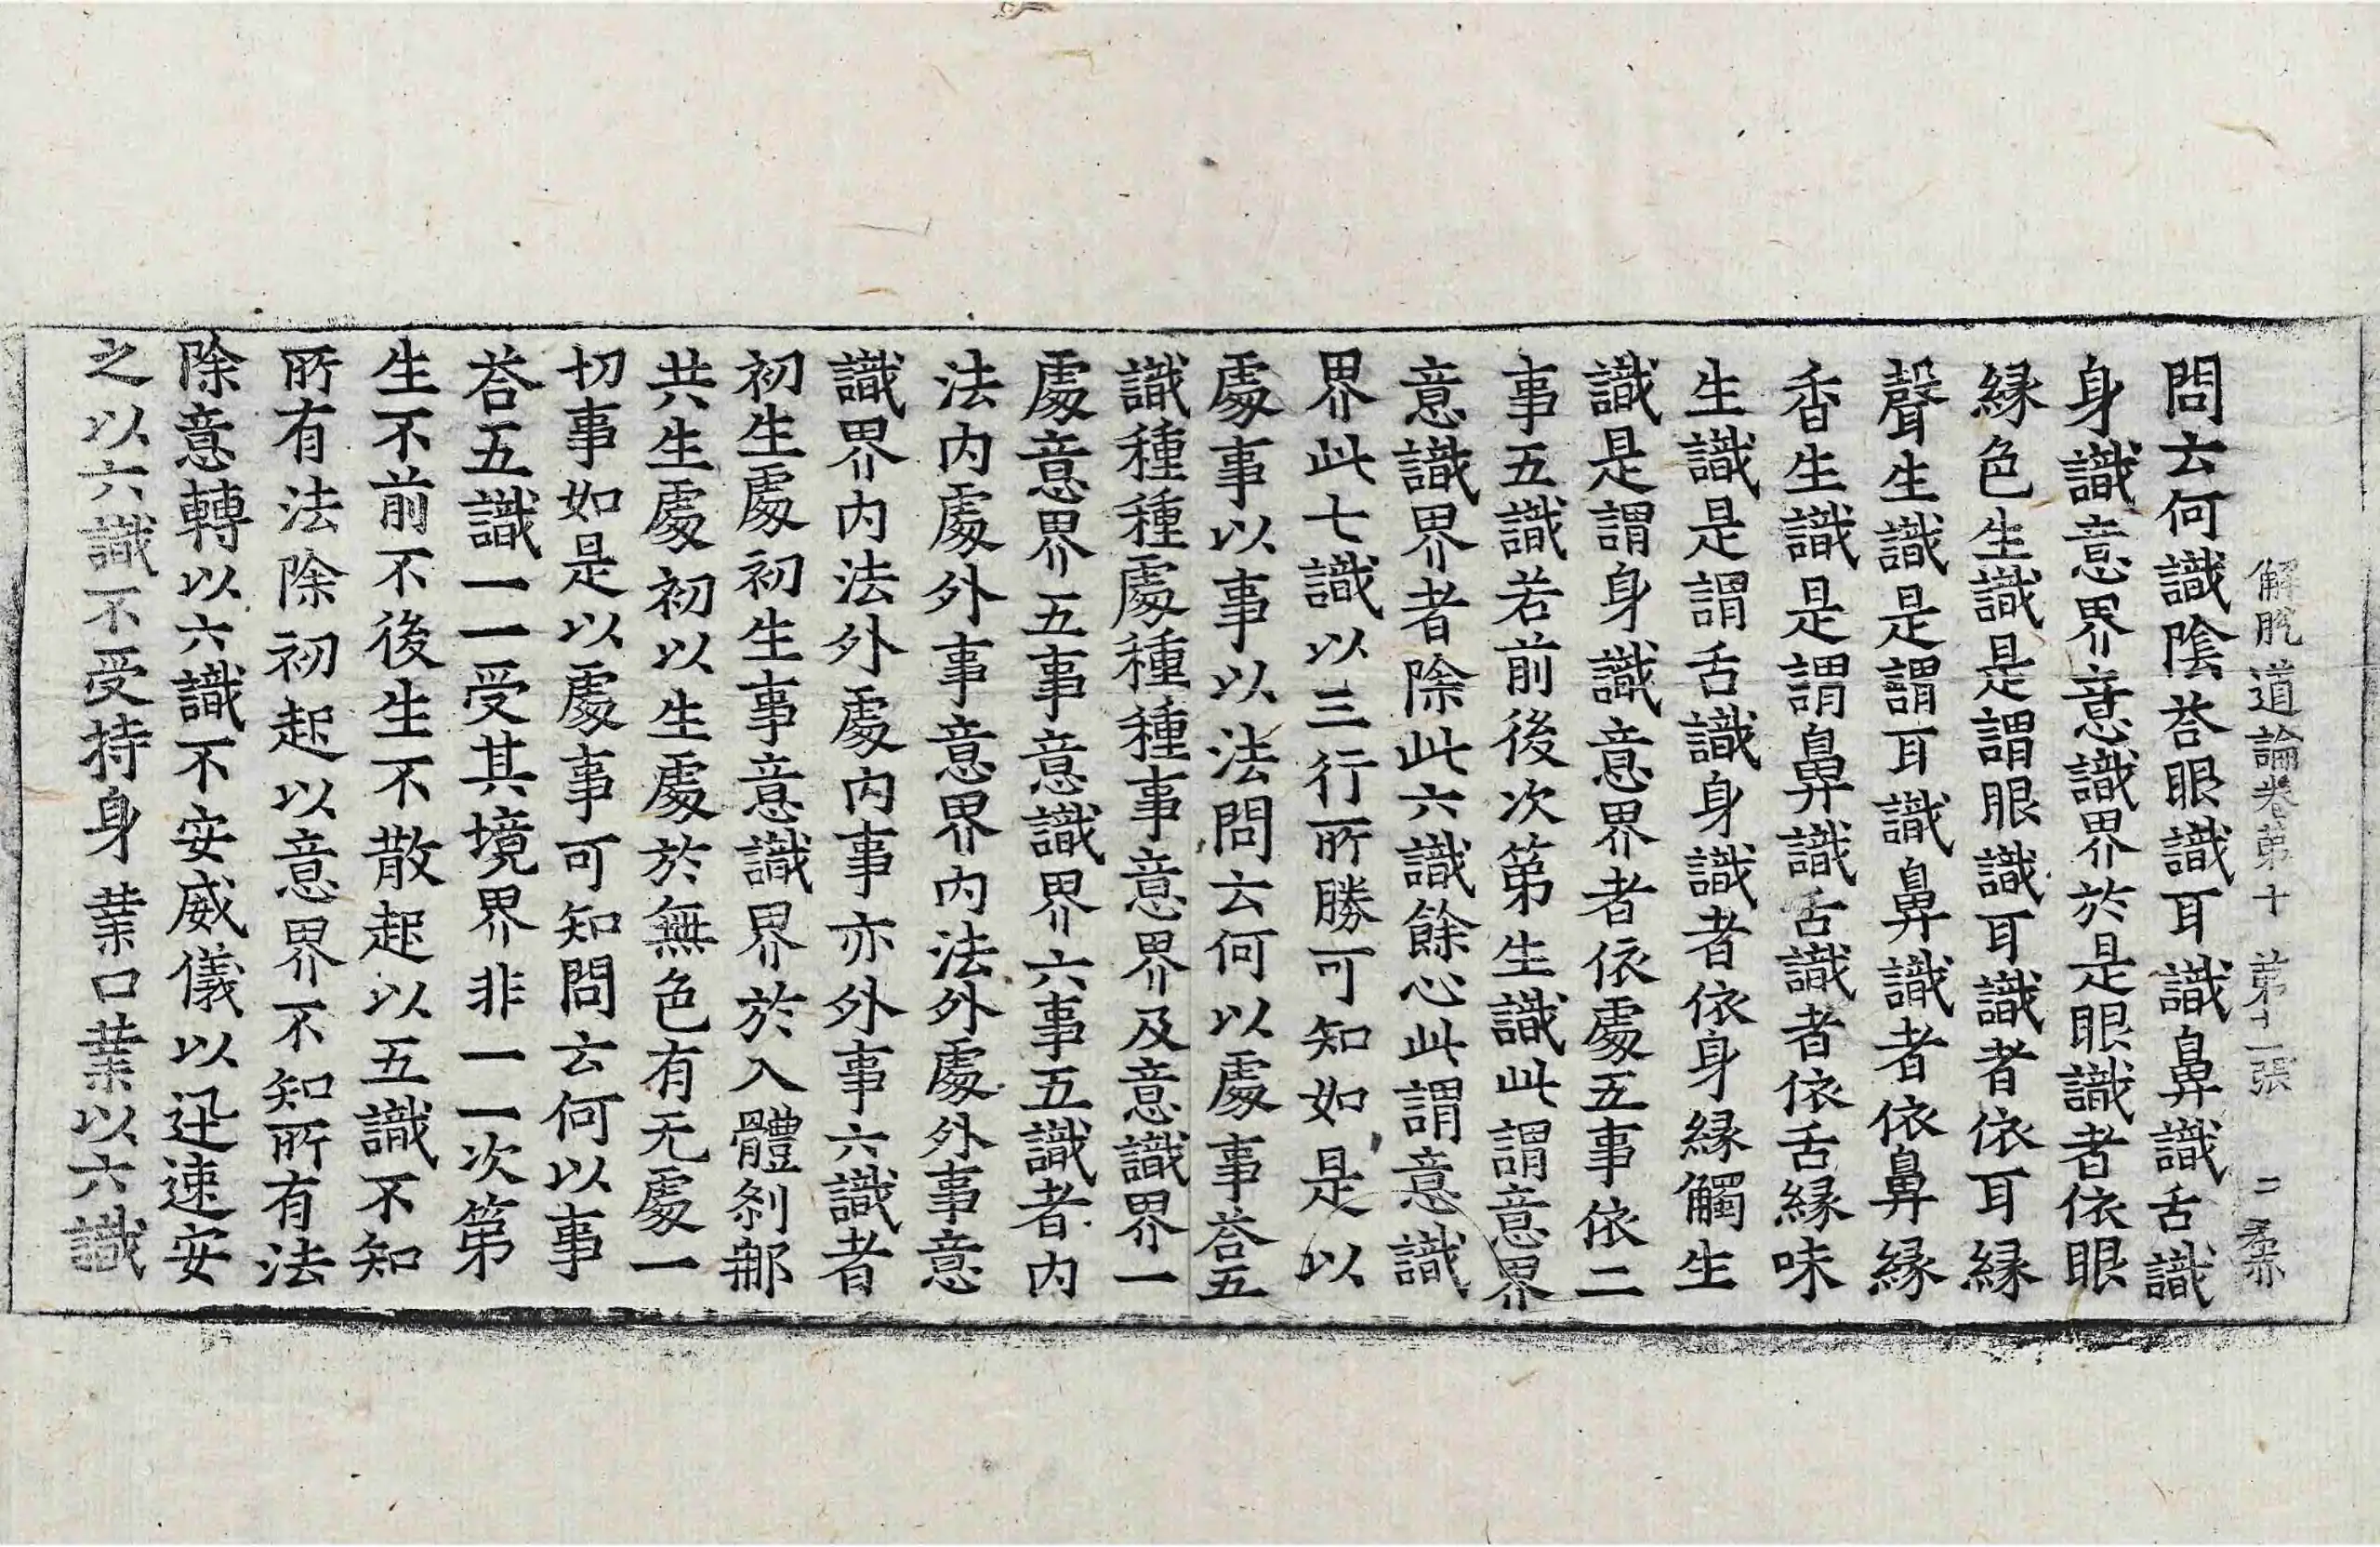 解脫道論卷第十 第十二張 二 柰
問云何識陰荅眼識耳識鼻識舌識
身識意界意識界於是眼識者依眼
緣色生識是謂眼識耳識者依耳緣
聲生識是謂耳識鼻識者依鼻緣
香生識是謂鼻識舌識者依舌緣味
生識是謂舌識身識者依身緣觸生
識是謂身識意界者依處五事依二
事五識若前後次第生識此謂意界
意識界者除此六識餘心此謂意識
界此七識以三行所勝可知如是以
處事以事以法問云何以處事荅五
識種種處種種事意界及意識界一
處意界五事意識界六事五識者內
法內處外事意界內法外處外事意
識界內法外處內事亦外事六識者
初生處初生事意識界於入體剎那
共生處初以生處於無色有无處一
切事如是以處事可知問云何以事
荅五識一一受其境界非一一次第
生不前不後生不散起以五識不知
所有法除初起以意界不知所有法
除意轉以六識不安威儀以迅速安
之以六識不受持身業口業以六識